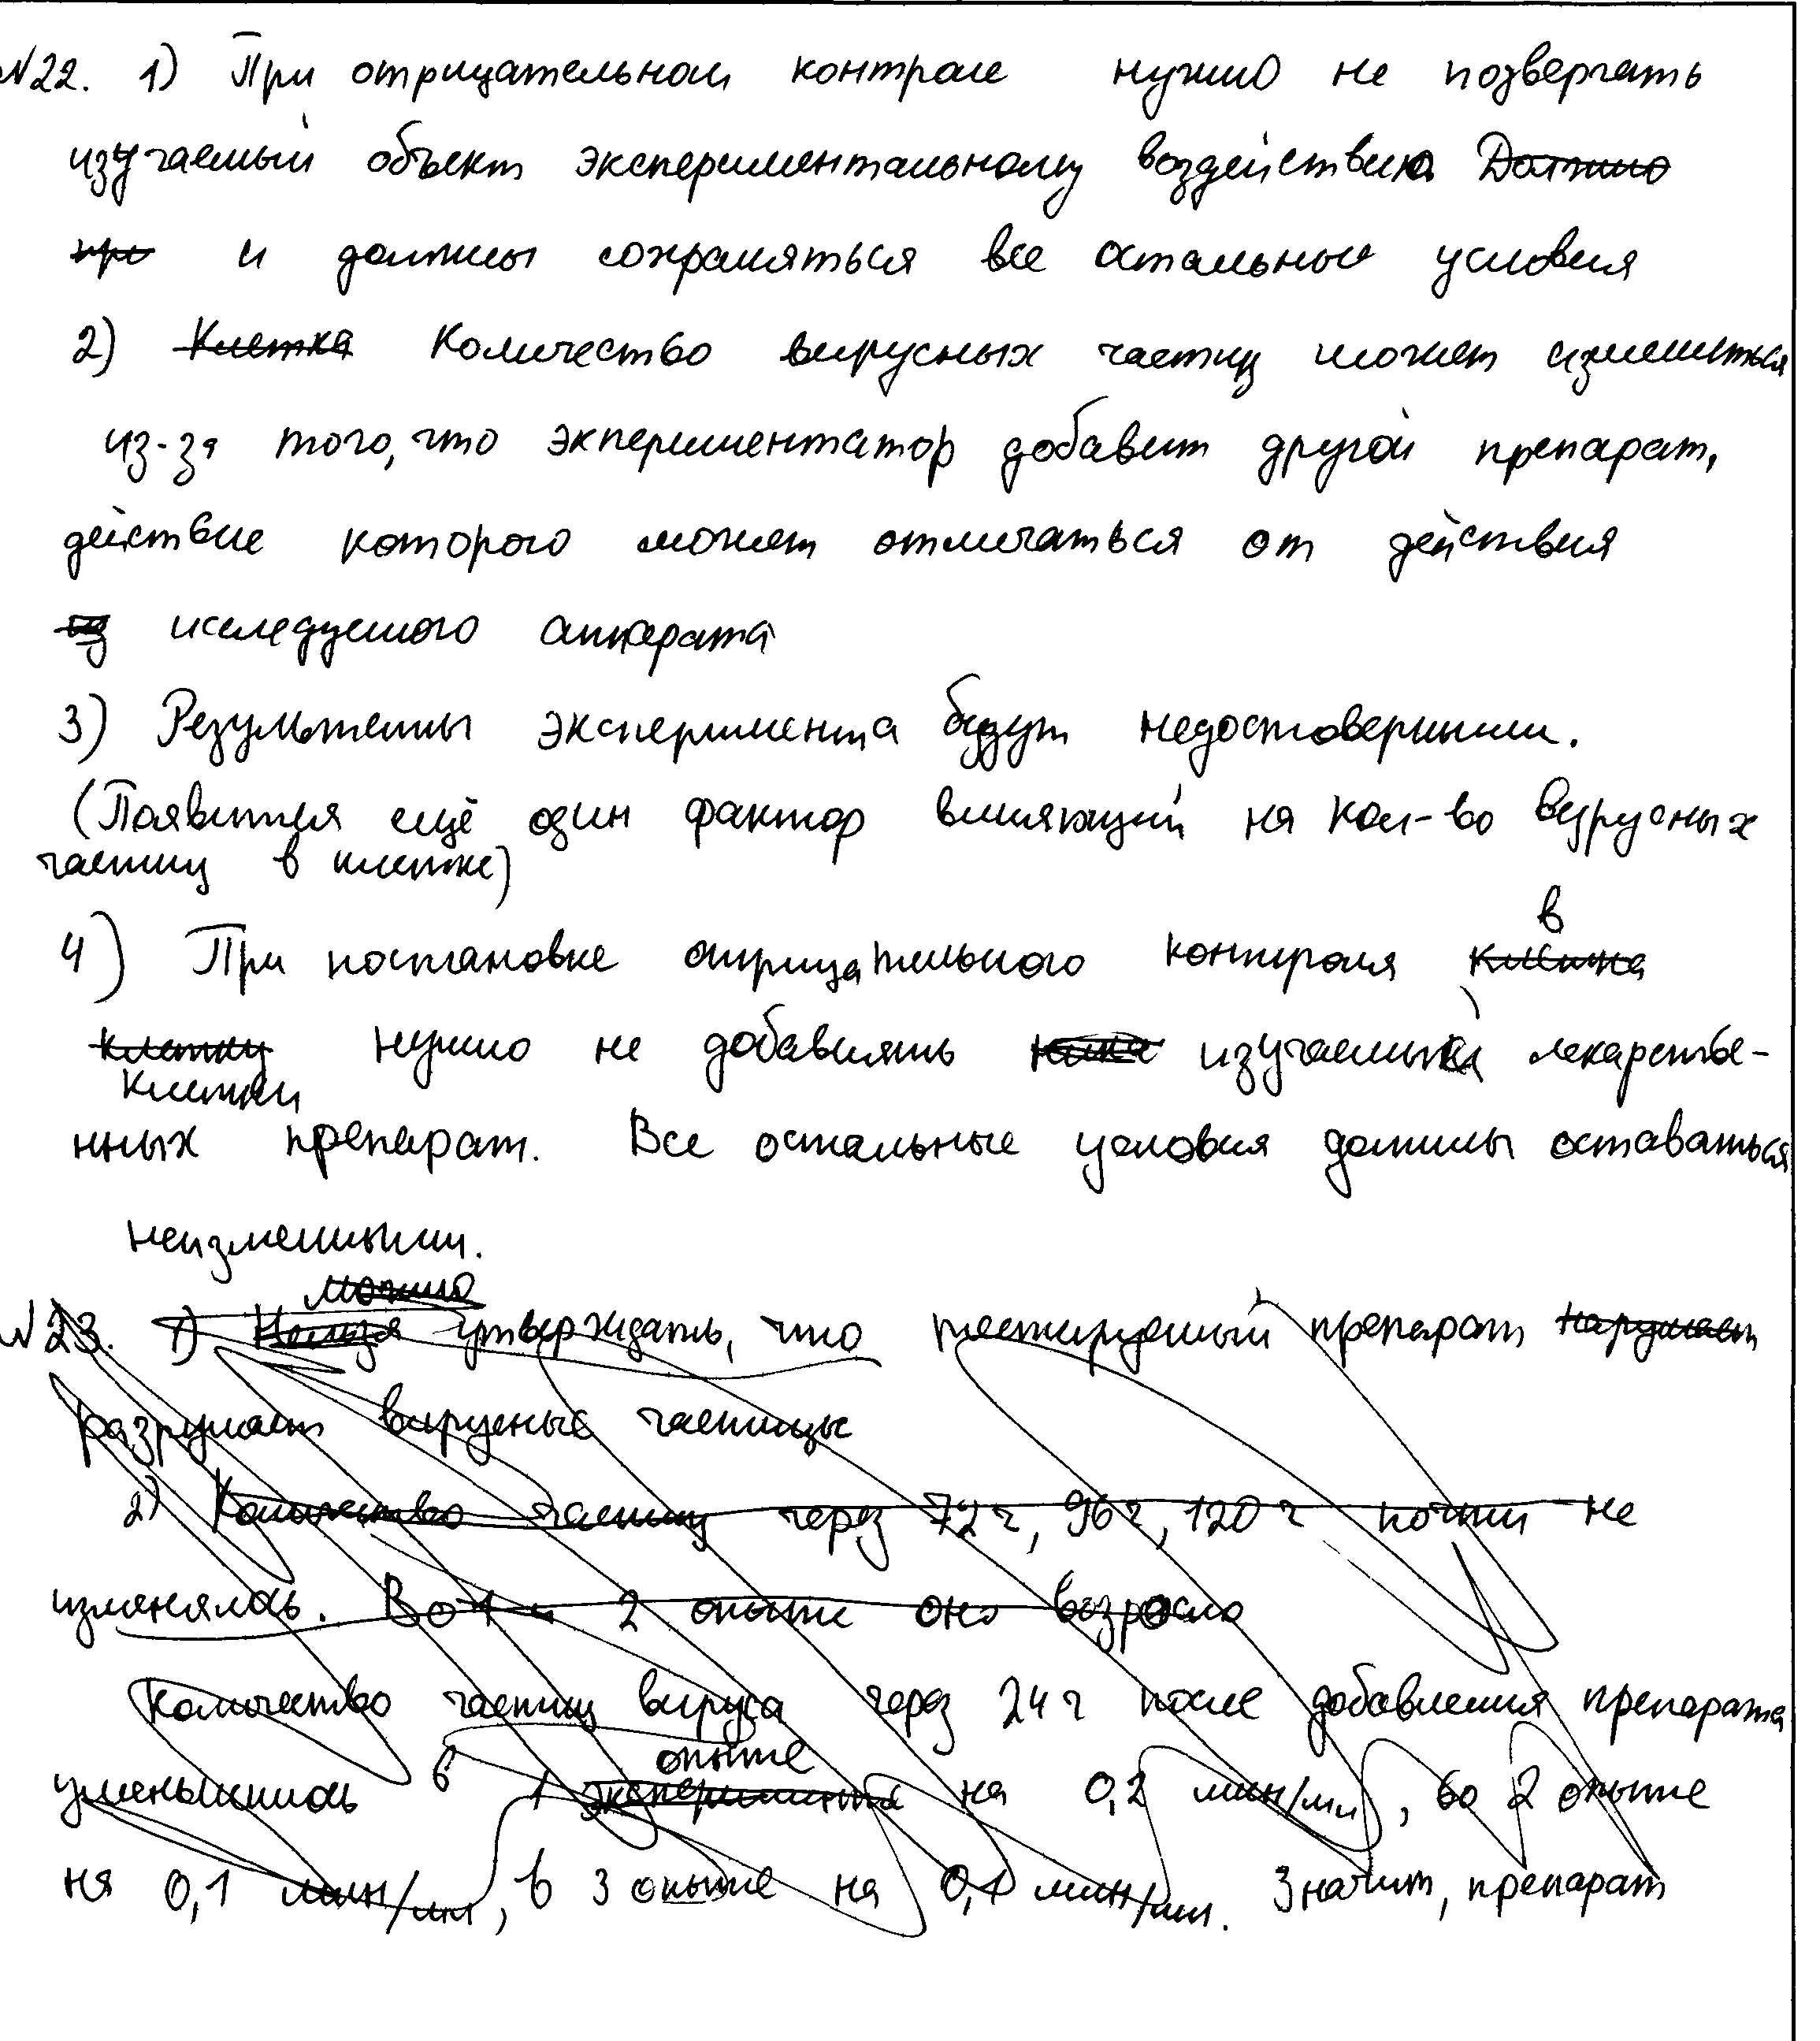 №22. 1) При отрицательном контроле нужно не подвергать
изучаемый объект экспериментальному воздействию ~~Должно~~
~~при~~ и должны сохраняться все остальные условия
2) ~~Клетка~~ Количество вирусных частиц может измениться
из-за того, что экпериментатор добавит другой препарат,
действие которого может отличаться от действия
исследуемого аппарата
3) Результаты эксперимента будут недостоверными.
(Появится ещё один фактор влияющий на кол-во вирусных
частиц в клетке)
4) При постановке отрицательного контроля ~~клетка~~ в
~~клетку~~ клетки нужно не добавлять изучаемый лекарстве-
нных препарат. Все остальные условия должны оставаться
неизменными.
~~можно~~
~~№23. 1) Нельзя утверждать, что тестируемый препарат нарушает~~
~~разрушает вирусные частицы~~
~~2) Количество частиц через 72 ч, 96 ч, 120 ч почти не~~
~~изменялось. Во 1 и 2 опыте оно возросло~~
~~Количество частиц вируса через 24 ч после добавления препарата~~
~~опыте~~
~~уменьшилось в 1 эксперименте на 0,2 млн/мл, во 2 опыте~~
~~на 0,1 млн/мл, в 3 опыте на 0,1 млн/мл. Значит, препарат~~